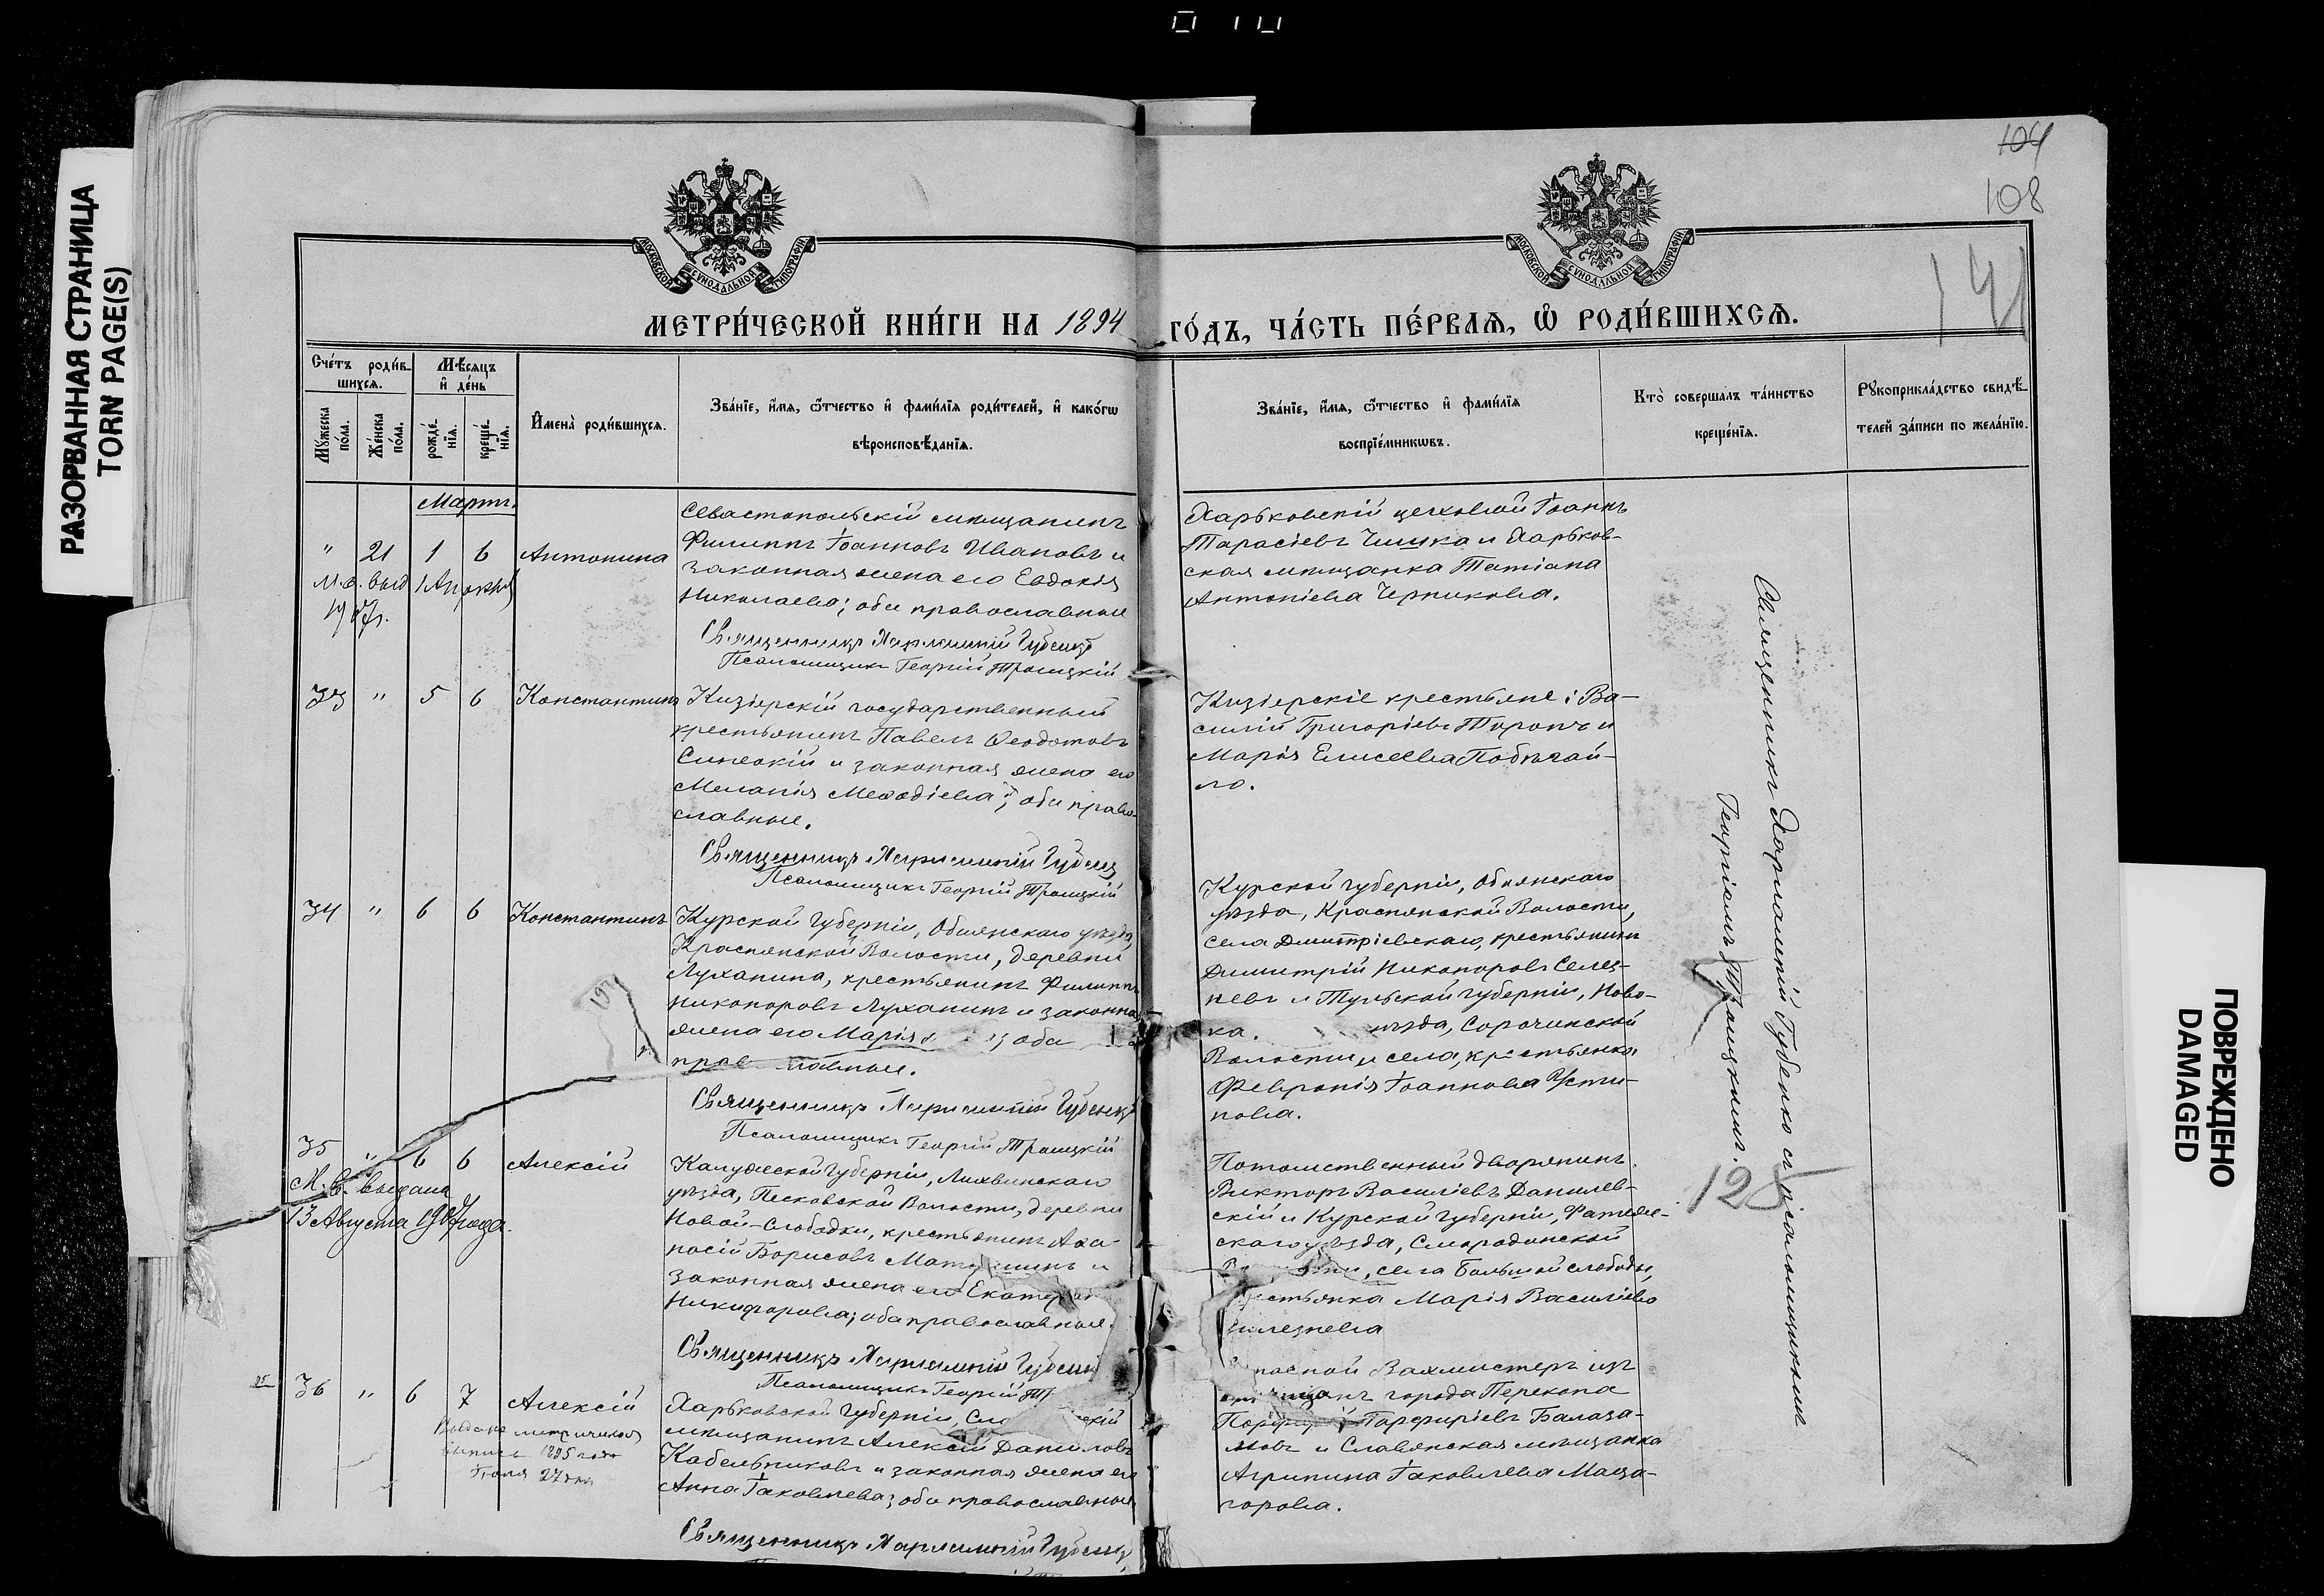 РАЗОРВАННАЯ СТРАНИЦА
TORN PAGE(S)
ПОВРЕЖДЕНО
DAMAGED
104
108
141
МОСКОВСКОЙ СѴНОДАЛЬНОЙ ТИПОГРАФІИ
МОСКОВСКОЙ СѴНОДАЛЬНОЙ ТИПОГРАФІИ
МЕТРИ́ЧЕСКОЙ КНИ́ГИ НА 1894
ГО́ДЪ, ЧА́СТЬ ПЕ́РВАѦ, Ѽ РОДИ́ВШИХСѦ.
Сче́тъ роди́в-
шихсѧ.
Мꙋ́жеска
по́ла.
Же́нска
по́ла.
Мѣ́сѧцъ
и҆ де́нь
рожде́-
нїѧ.
креще́-
нїѧ.
И҆мена̀ роди́вшихсѧ.
Зва́нїе, и҆́мѧ, ѻ҆́тчество и҆ фами́лїѧ роди́телей, и҆ како́гѡ
вѣроисповѣ́данїѧ.
Зва́нїе, и҆́мѧ, ѻ҆́тчество и҆ фами́лїѧ
воспрїе́мникѡвъ.
Кто̀ соверша́лъ та́инство
креще́нїѧ.
Рꙋкоприкла́дство свидѣ́-
телей за́писи по жела́нїю.
Мартъ.
" 21 1 6 Антонина
М.в. выд. 1 Апрѣля
1907г.
Севастопольскій мѣщанинъ
Филиппъ Іоанновъ Ивановъ и
законная жена его Евдокія
Николаева; оба православные
Священникъ Харлампій Губенко
Псаломщикъ Георгій Троицкій
Харьковскій цеховой Іоаннъ
Тарасіевъ Чишка и Харьков-
ская мѣщанка Татіана
Антоніева Черникова.
33 " 5 6 Константинъ
Кизіерскій государственный
крестьянинъ Павелъ Ѳеодотовъ
Синеокій и законная жена его
Меланія Меѳодіева; оба право-
славные.
Священникъ Харлампій Губенко
Псаломщикъ Георгій Троицкій
Кизіерскіе крестьяне: Ва-
силій Григоріевъ Таранъ и
Марія Елисеева Побѣгай-
ло.
34 " 6 6 Константинъ
Курской Губерніи, Обоянскаго уѣзда,
Краснянской Волости, деревни
Луханина, крестьянинъ Филиппъ
Никаноровъ Луханинъ и законная
жена его Марія оба
православные.
Священникъ Харлампій Губенко
Псаломщикъ Георгій Троицкій
Курской губерніи, Обоянскаго
уѣзда, Краснянской Волости,
села Дмитріевскаго, крестьянинъ
Димитрій Никаноровъ Селез-
невъ и Тульской губерніи, Ново-
уѣзда, Сорочинской
Волости и села, крестьянка
Февронія Іоаннова Усти-
нова.
35 " 6 6 Алексій
М. в. выдана
13 Августа 1907 года.
Калужской Губерніи, Лихвинскаго
уѣзда, Песковской Волости, деревни
Новой-Слободки, крестьянинъ Аѳа-
насій Борисовъ и
законная жена его Екатерина
Никифорова; оба православные.
Священникъ Харлампій Губенко
Псаломщикъ Георгій
Потомственный дворянинъ
Викторъ Василіевъ Данилев-
скій и Курской Губерніи, Фатеж-
скаго уѣзда, Смородинской
Волости, села Большой слободы,
крестьянка Марія Василіева
36 " 6 7 Алексій
Выдана метрическая
выпись 1895 года
Іюля 27 дня
Харьковской Губерніи,
мѣщанинъ Алексій Даниловъ
Кабельниковъ и законная жена его
Анна Іаковлева; оба православные.
Священникъ Харлампій Губенко
Запасной Вахмистеръ изъ
мѣщанъ города Перекопа
Порфирій Порфиріевъ Балаба-
новъ и Славянская мѣщанка
Агрипина Іаковлева Маза-
горова.
Священникъ Харлампій Губенко съ псаломщикомъ
Георгіемъ Троицкимъ.
125